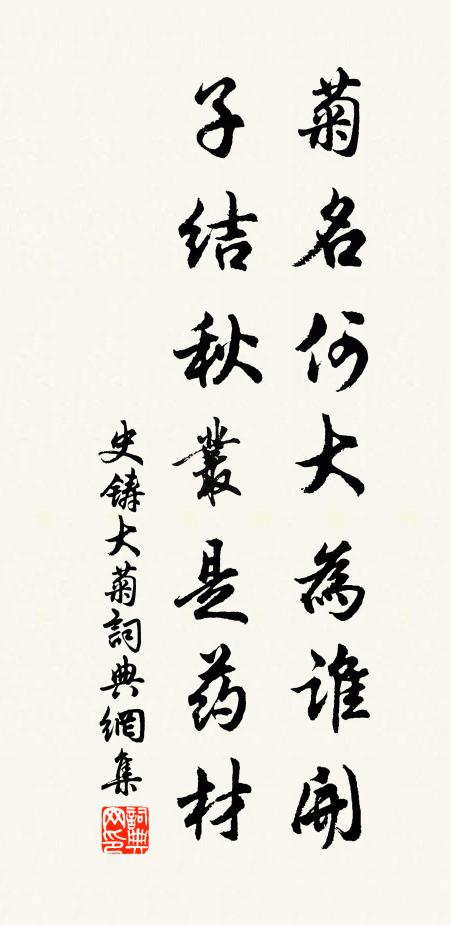 菊名何大為誰開
子结秋叢是药材
史鋳大菊詞典網集
詞典網印